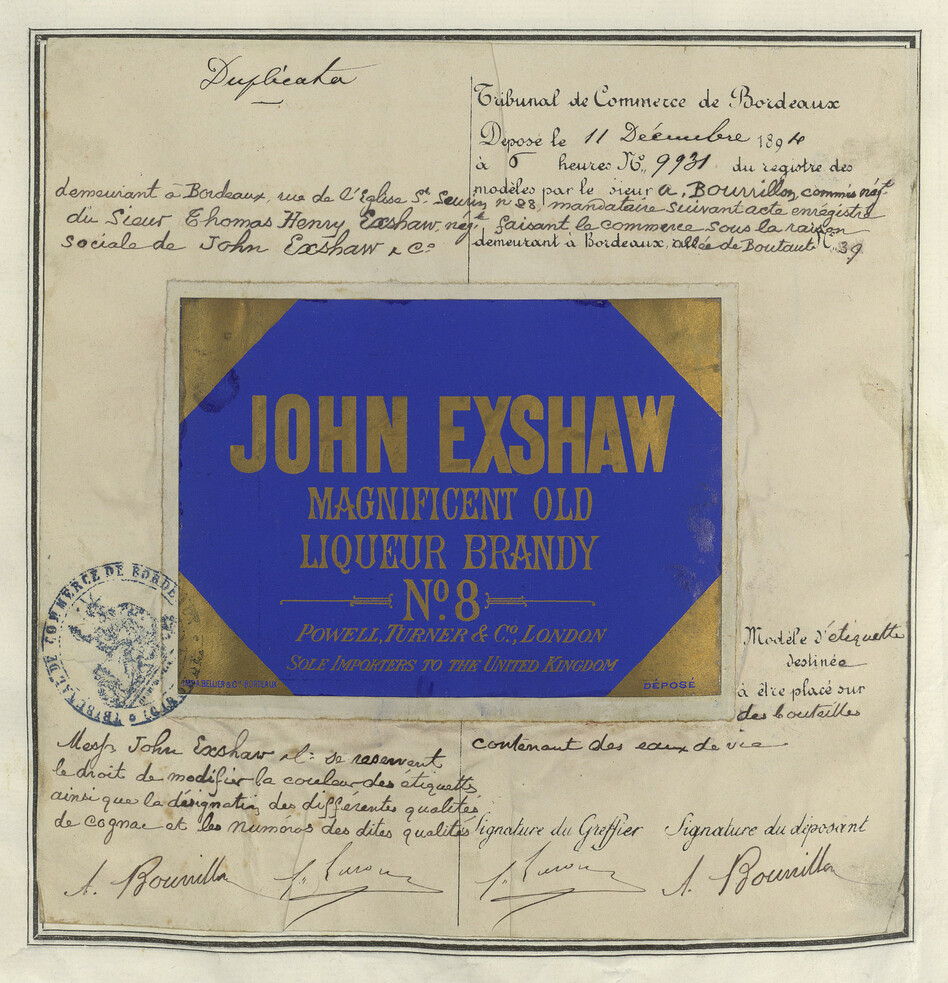 Duplicata
Tribunal de Commerce de Bordeaux
Déposé le 11 Décembre 1894
à 5 heures No. 9931 du registre des
modèles par le sieur A. Bourrillon, commis négt.
demeurant à Bordeaux, rue de l'Eglise St. Seurin no 28, mandataire suivant acte enrégistré
du Sieur Thomas Henry Exshaw, négt. faisant le commerce sous la raison
sociale de John Exshaw & Co. demeurant à Bordeaux, allée de Boutaut No. 39
JOHN EXSHAW
MAGNIFICENT OLD
LIQUEUR BRANDY
No. 8
POWELL, TURNER & Co., LONDON
SOLE IMPORTERS TO THE UNITED KINGDOM
BELLIER & Cie. BORDEAUX
DÉPOSÉ
TRIBUNAL DE COMMERCE DE BORDE
Modèle d'étiquette
destinée
à être placé sur
des bouteilles
contenant des eaux de vie
Messrs John Exshaw & Co. se reservent
le droit de modifier la couleur des étiquettes
ainsi que la désignation des différentes qualités
de cognac et les numéros des dites qualités
Signature du Greffier Signature du déposant
A. Bourrillon
A. Bourrillon